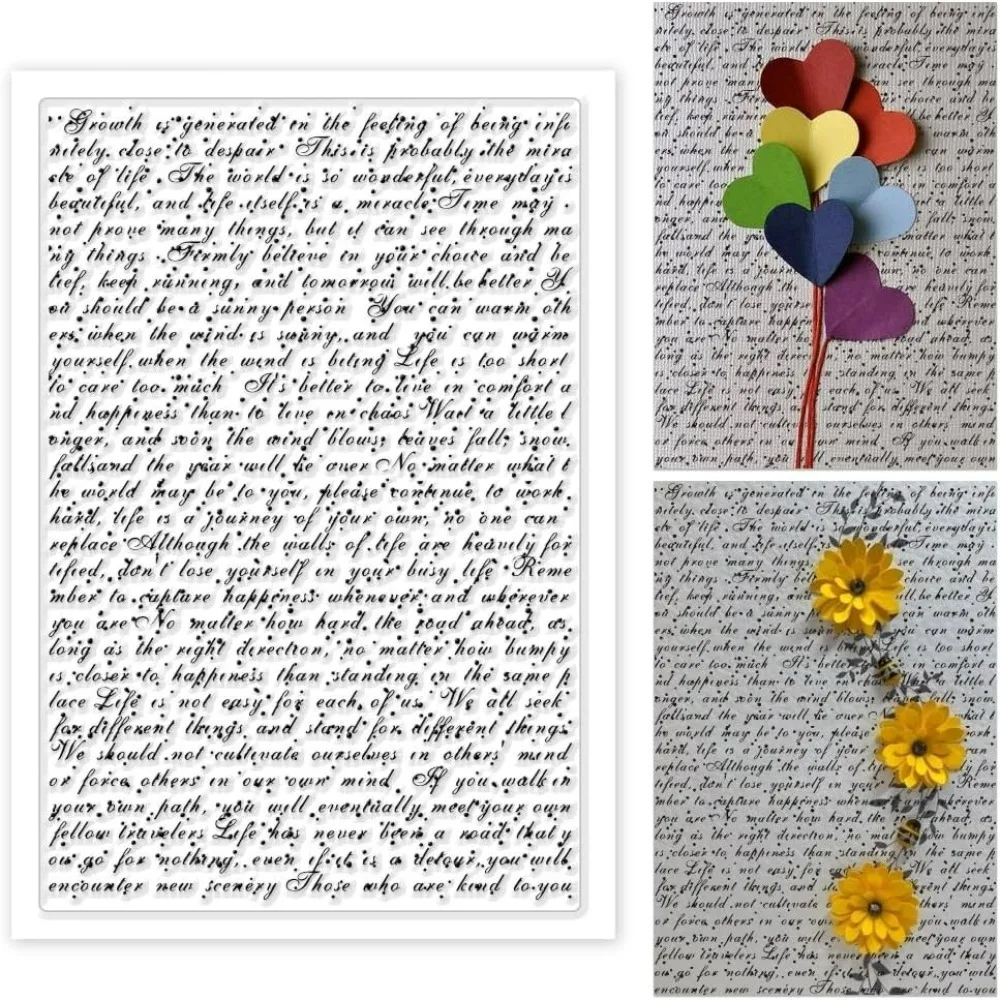 Growth is generated in the feeling of being infi
nitely close to despair This is probably the mira
cle of life. The world is so wonderful, everyday is
beautiful, and life itself is a miracle Time may
not prove many things, but it can see through ma
ny things. Firmly believe in your choice and be
lief, keep running, and tomorrow will be better Y
ou should be a sunny person You can warm oth
ers when the wind is sunny, and you can warm
yourself when the wind is biting Life is too short
to care too much It's better to live in comfort a
nd happiness than to live in chaos Wait a little l
onger, and soon the wind blows, leaves fall, snow
fallsand the year will be over No matter what t
he world may be to you, please continue to work
hard, life is a journey of your own, no one can
replace Although the walls of life are heavily for
tified, don't lose yourself in your busy life Reme
mber to capture happiness whenever and wherever
you are No matter how hard the road ahead, as
long as the right direction, no matter how bumpy
is closer to happiness than standing in the same p
lace Life is not easy for each of us We all seek
for different things and stand for different things
We should not cultivate ourselves in others' mind
or force others in our own mind If you walk in
your own path, you will eventually meet your own
fellow travelers Life has never been a road that y
ou go for nothing, even if it is a detour, you will
encounter new scenery Those who are kind to you